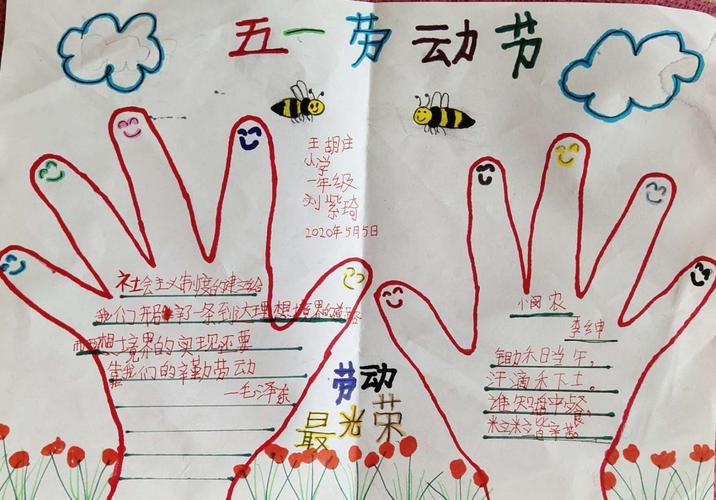 五一劳动节
王胡庄
小学
一年级
刘紫琦
2020年5月5日
社会主义制度的建立给
我们开辟了一条到达理想境界的道路
而理想境界的实现还要
靠我们的辛勤劳动
—毛泽东
悯农
李绅
锄禾日当午,
汗滴禾下土。
谁知盘中餐,
粒粒皆辛苦。
劳动
最光荣